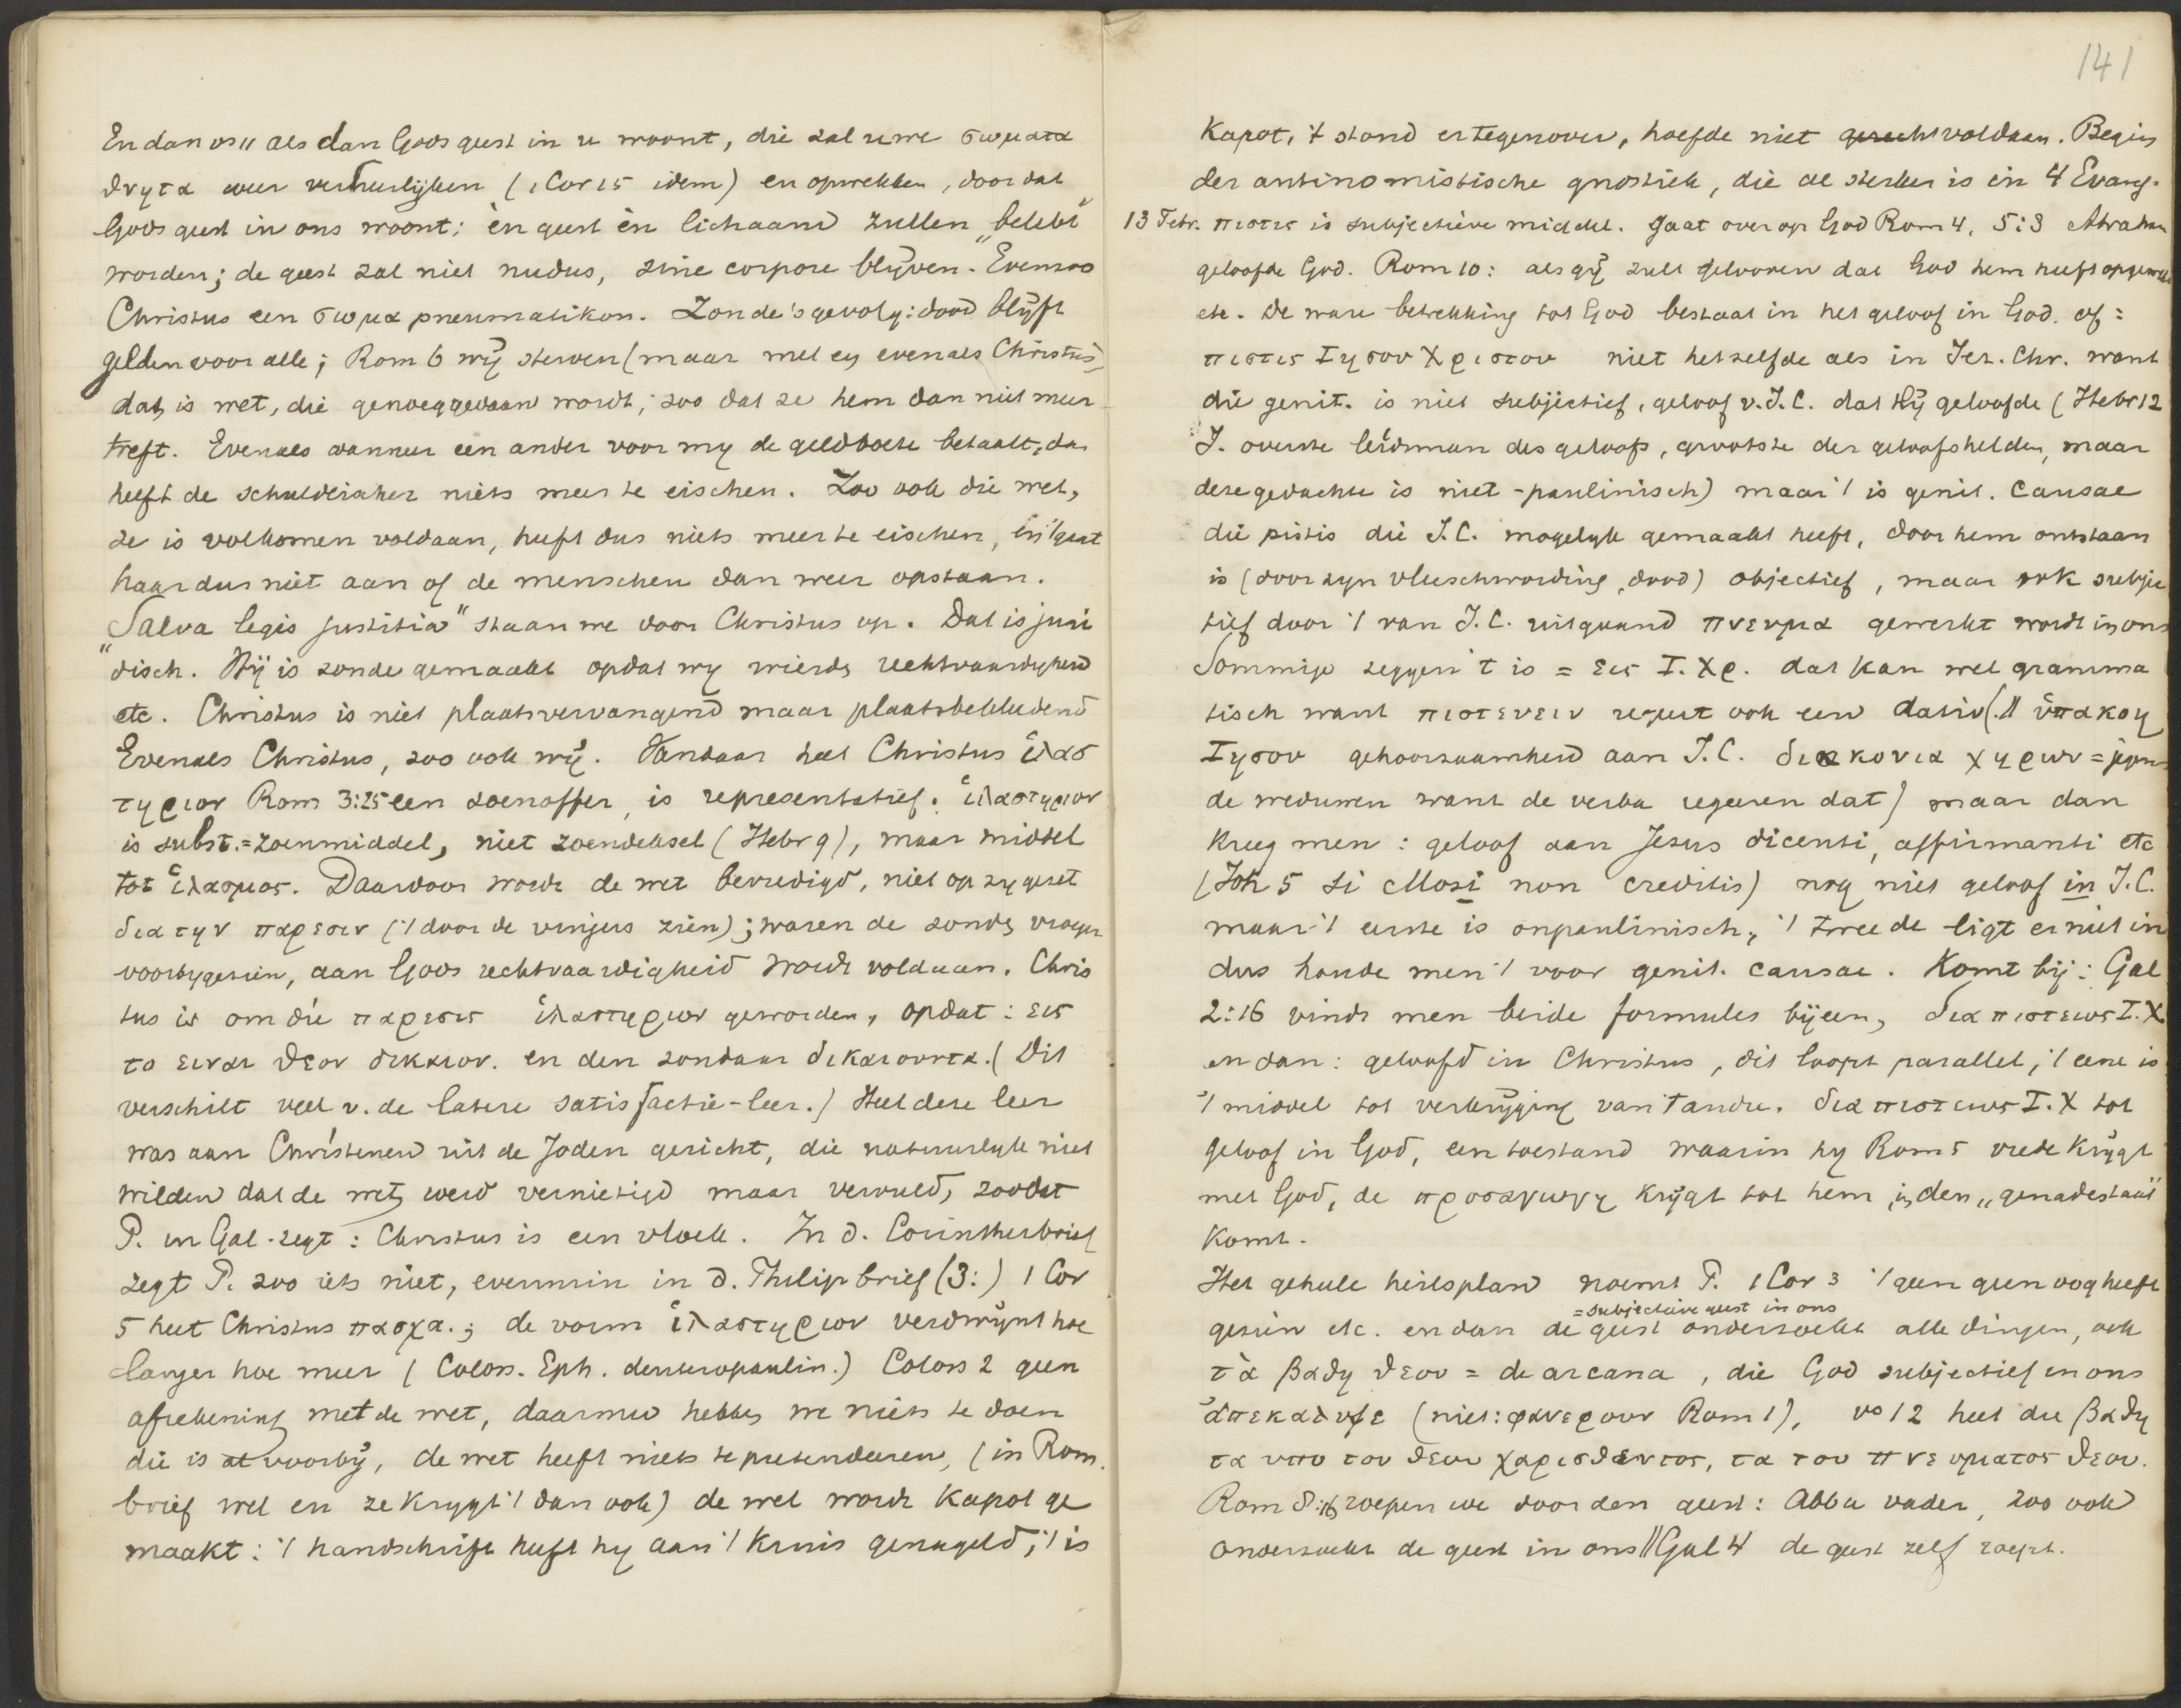 En dan vs 11 als dan Gods geest in u woont, die zal uwe σωματα
θνητα weer verheerlijken (1 Cor 15 idem) en opwekken, door dat
Gods geest in ons woont; èn geest èn lichaam zullen „belebt"
worden; de geest zal niet nudus, sine corpore blijven. Evenzoo
Christus een σωμα pneumatikon. Zonde's gevolg: dood blijft
gelden voor alle; Rom 6 wij sterven (maar met en evenals Christus)
dat is wet, die genoeggedaan wordt, zoo dat ze hem dan niet meer
treft. Evenals wanneer een ander voor my de geldboete betaalt, dan
heeft de schuldeischer niets meer te eischen. Zoo ook die wet,
ze is volkomen voldaan, heeft dus niets meer te eischen, en 't gaat
haar dus niet aan of de menschen dan weer opstaan.
„Salva legis justitia" staan we door Christus op. Dat is juri
disch. Hij is zonde gemaakt opdat wy wierdn rechtvaardigheid
etc. Christus is niet plaatsvervangend maar plaatsbekleedend
Evenals Christus, zoo ook wij. Vandaar heet Christus ἱλασ
τηριον Rom 3:25 een zoenoffer, is representatief. ἱλαστηριον
is subst. = zoenmiddel, niet zoendeksel (Hebr 9), maar middel
tot ἱλασμος. Daardoor wordt de wet bevredigd, niet op zy gezet
δια την παρεσιν ('t door de vingers zien); waren de zonden vroeger
voorbygezien, aan Gods rechtvaardigheid wordt voldaan. Chris
tus is om die παρεσις ἱλαστηριον geworden, opdat: εις
το ειναι θεον δικαιον. en den zondaar δικαιουντα. (Dit
verschilt veel v. de latere satisfactie-leer.) Heel deze leer
was aan Christenen uit de Joden gericht, die natuurlyk niet
wilden dat de wet werd vernietigd maar vervuld, zoodat
P. in Gal. zegt: Christus is een vloek. In d. Corintherbrief
zegt P. zoo iets niet, evenmin in d. Philipbrief (3:) 1 Cor
5 heet Christus πασχα.; de vorm ἱλαστηριον verdwijnt hoe
langer hoe meer (Coloss. Eph. deuteropaulin.) Coloss 2 geen
afrekening met de wet, daarmee hebben we niets te doen
die is al voorbij, de wet heeft niets te pretendeeren, (in Rom.
brief wel en ze krygt 't dan ook) de wet wordt kapot ge
maakt: 't handschrift heeft hy aan 't kruis genageld; 't is
141
Kapot, 't stond er tegenover, hoefde niet voldaan. Begin
der antinomistische gnostiek, die al sterker is in 4 Evang.
13 Febr. πιστις is subjectieve middel. Gaat over op God Rom 4, 5:3 Abraham
geloofde God. Rom 10: als gij zult gelooven dat God hem heeft opgewekt
etc. De ware betrekking tot God bestaat in het geloof in God. of:
πιστις Ιησου Χριστου niet hetzelfde als in Jez. Chr. want
die genit. is niet subjectief, geloof v. J.C. dat Hij geloofde (Hebr 12
J. overste leidsman des geloofs, grootste der geloofshelden, maar
deze gedachte is niet-paulinisch) maar 't is genit. causae
die pistis die J.C. mogelyk gemaakt heeft, door hem ontstaan
is (door zyn vleeschwording, dood) objectief, maar ook subjec
tief door 't van J.C. uitgaand πνευμα gewerkt wordt in ons
Sommige zeggen 't is = εις Ι. Χρ. dat kan wel gramma
tisch want πιστευειν regeert ook een dativ (.// ὑπακοη
Ιησου gehoorzaamheid aan J.C. διακονια χηρων = jegens
de weduwen want de verba regeeren dat) maar dan
kreeg men: geloof aan Jesus dicenti, affirmanti etc
(Joh 5 si Mosi non creditis) nog niet geloof in J.C.
maar 't eerste is onpaulinisch, 't tweede ligt er niet in
dus houde men 't voor genit. causae. Komt bij: Gal
2:16 vindt men beide formules bijeen, δια πιστεως Ι. Χ
en dan: geloofd in Christus, dit loopt parallel, 't eene is
't middel tot verkrijging van 't andre. δια πιστεως Ι. Χ tot
geloof in God, een toestand waarin hy Rom 5 vrede krijgt
met God, de προσαγωγη krijgt tot hem, in den „genadestaat"
komt.
Het geheele heilsplan noemt P. 1 Cor 3 't geen geen oog heeft
= subjectieve geest in ons
gezien etc. en dan de geest onderzoekt alle dingen, ook
τὰ βαθη θεου = de arcana, die God subjectief in ons
ἀπεκαλυψε (niet: φανερουν Rom 1), vs 12 heet die βαθη
τα υπο του θεου χαρισθεντος, τα του πνευματος θεου.
Rom 8:15 roepen we door den geest: Abba vader, zoo ook
onderzoekt de geest in ons // Gal 4 de geest zelf roept.